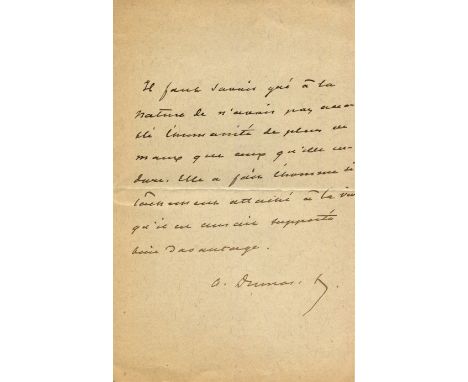 Il faut savoir gré à la
nature de n'avoir pas acca
blé l'humanité de plus de
maux que ceux qu'elle en-
dure. Elle a fait l'homme si
lâchement attaché à la vie
qu'il en aurait supporté
bien davantage.
A. Dumas. f.